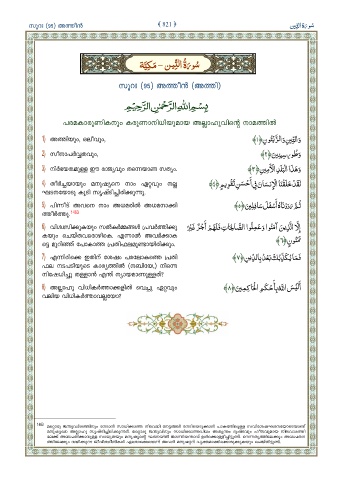 സൂറഃ (95) അത്തീൻ ﴾ 821 ﴿ سُورَةُ التِّين
سُورَةُ التِّين - مَكِّيَّة
സൂറഃ (95) അത്തീൻ (അത്തി)
بِسْمِ اللَّهِ الرَّحْمَٰنِ الرَّحِيمِ
പരമകാരുണികനും കരുണാനിധിയുമായ അല്ലാഹുവിന്റെ നാമത്തിൽ
1) അത്തിയും, ഒലീവും,
وَالتِّينِ وَالزَّيْتُونِ ﴿١﴾
2) സീനാപർവ്വതവും,
وَطُورِ سِينِينَ ﴿٢﴾
3) നിർഭയത്വമുള്ള ഈ രാജ്യവും തന്നെയാണ സത്യം.
وَهَٰذَا الْبَلَدِ الْأَمِينِ ﴿٣﴾
4) തീർച്ചയായും മനുഷ്യനെ നാം ഏറ്റവും നല്ല
ഘടനയോടു കൂടി സൃഷ്ടിച്ചിരിക്കുന്നു.
لَقَدْ خَلَقْنَا الْإِنسَانَ فِي أَحْسَنِ تَقْوِيمٍ ﴿٤﴾
5) പിന്നീട് അവനെ നാം അധമരിൽ അധമനാക്കി
ത്തീർത്തു.
ثُمَّ رَدَدْنَاهُ أَسْفَلَ سَافِلِينَ ﴿٥﴾
6) വിശ്വസിക്കുകയും സൽകർമ്മങ്ങൾ പ്രവർത്തിക്കു
കയും ചെയ്തവരൊഴികെ. എന്നാൽ അവർക്കാക
ട്ടെ മുറിഞ്ഞ് പോകാത്ത പ്രതിഫലമുണ്ടായിരിക്കും.
إِلَّا الَّذِينَ آمَنُوا وَعَمِلُوا الصَّالِحَاتِ فَلَهُمْ أَجْرٌ غَيْرُ
مَمْنُونٍ ﴿٦﴾
7) എന്നിരിക്കെ ഇതിന് ശേഷം പരലോകത്തെ പ്രതി
ഫല നടപടിയുടെ കാര്യത്തിൽ (നബിയേ,) നിന്നെ
നിഷേധിച്ചു തള്ളാൻ എന്ത് ന്യായമാണുള്ളത്?
فَمَا يُكَذِّبُكَ بَعْدُ بِالدِّينِ ﴿٧﴾
8) അല്ലാഹു വിധികർത്താക്കളിൽ വെച്ചു ഏറ്റവും
വലിയ വിധികർത്താവല്ലയോ?
أَلَيْسَ اللَّهُ بِأَحْكَمِ الْحَاكِمِينَ ﴿٨﴾